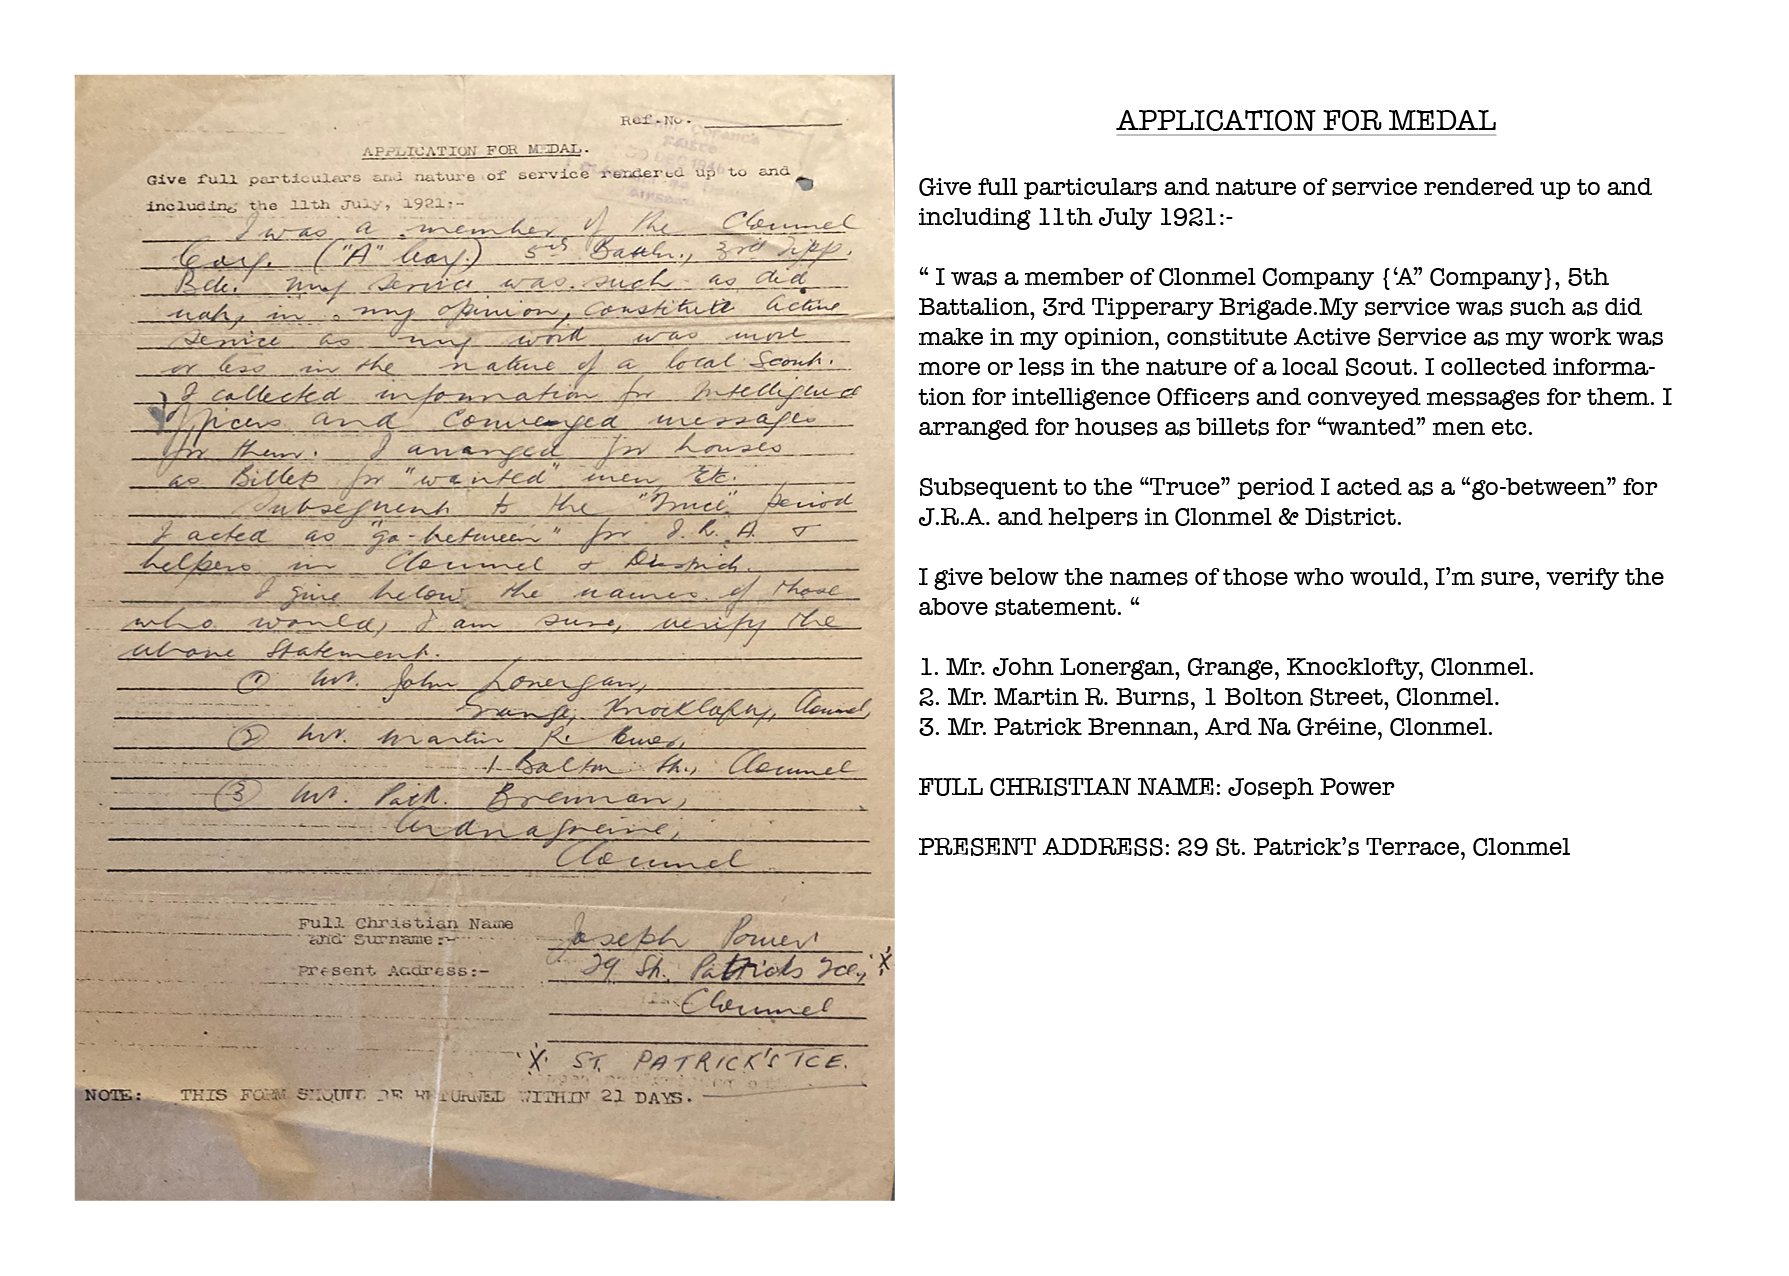 Ref.No.
30 DEC 1946
APPLICATION FOR MEDAL.
Give full particulars and nature of service rendered up to and
including the 11th July, 1921:-
I was a member of the Clonmel
Coy. ("A" Coy.) 5th Battn., 3rd Tipp.
Bde. My service was such as did
not, in my opinion, constitute Active
Service as my work was more
or less in the nature of a local Scout.
I collected information for Intelligence
Officers and conveyed messages
for them. I arranged for houses
as Billets for "wanted" men, etc.
Subsequent to the "Truce" period
I acted as "go-between" for I.R.A. &
helpers in Clonmel & District.
I give below the names of those
who would, I am sure, verify the
above statement.
① Mr. John Lonergan,
Grange, Knocklofty, Clonmel,
② Mr. Martin R.
1 Bolton St., Clonmel
③ Mr. Patk. Brennan,
Ardnagreine,
Clonmel
Full Christian Name
and Surname:-
Joseph Power
Present Address:-
29 St. Patricks Tce., X
Clonmel
X ST. PATRICK'S TCE.
NOTE: THIS FORM SHOULD BE RETURNED WITHIN 21 DAYS.
APPLICATION FOR MEDAL
Give full particulars and nature of service rendered up to and
including 11th July 1921:-
“ I was a member of Clonmel Company {‘A” Company}, 5th
Battalion, 3rd Tipperary Brigade.My service was such as did
make in my opinion, constitute Active Service as my work was
more or less in the nature of a local Scout. I collected informa-
tion for intelligence Officers and conveyed messages for them. I
arranged for houses as billets for “wanted” men etc.
Subsequent to the “Truce” period I acted as a “go-between” for
J.R.A. and helpers in Clonmel & District.
I give below the names of those who would, I’m sure, verify the
above statement. “
1. Mr. John Lonergan, Grange, Knocklofty, Clonmel.
2. Mr. Martin R. Burns, 1 Bolton Street, Clonmel.
3. Mr. Patrick Brennan, Ard Na Gréine, Clonmel.
FULL CHRISTIAN NAME: Joseph Power
PRESENT ADDRESS: 29 St. Patrick’s Terrace, Clonmel